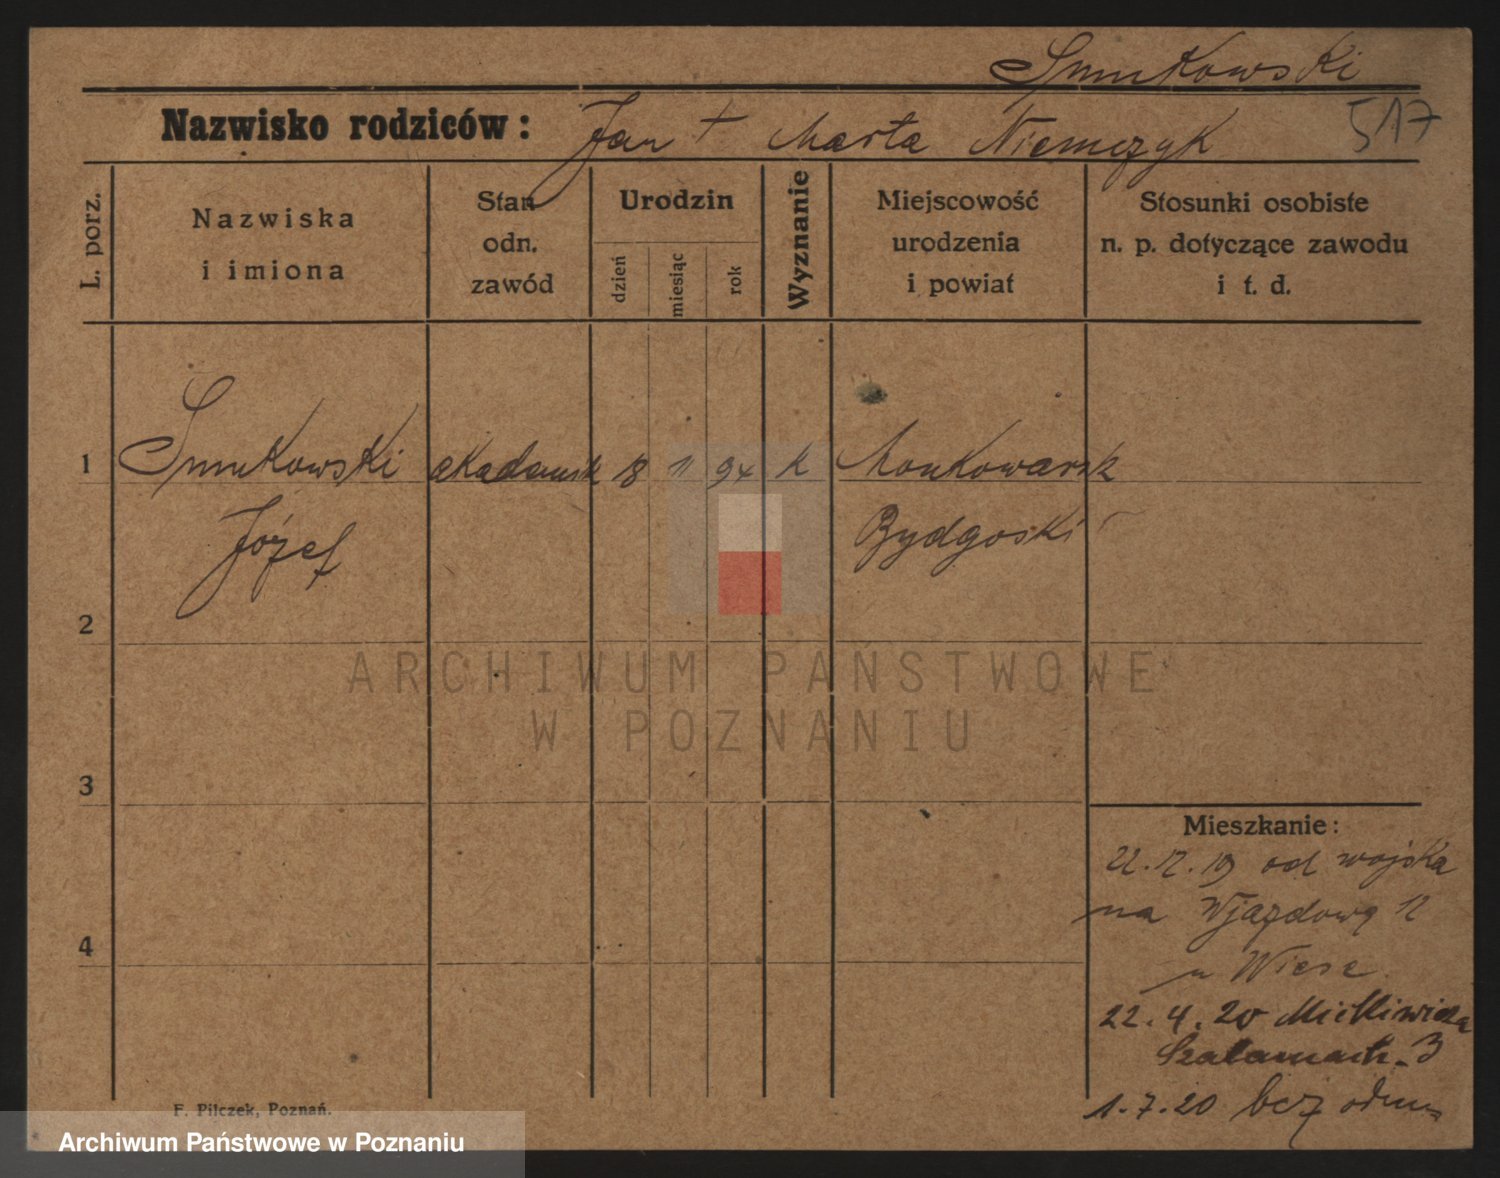 Smukowski
Nazwisko rodziców: Jan + Marta Niemczyk 517
L. porz.
Nazwiska
i imiona
Stan
odn.
zawód
Urodzin
dzień
miesiąc
rok
Wyznanie
Miejscowość
urodzenia
i powiat
Stosunki osobiste
n. p. dotyczące zawodu
i t. d.
1 Smukowski 18 11 94 k
Józef Bydgoski
2
ARCHIWUM PAŃSTWOWE
W POZNANIU
3
Mieszkanie:
22.12.19 od wojska
na Wjazdową 12
u Wiese
4
22.4.20
3
1.7.20 bez
F. Pilczek, Poznań.
Archiwum Państwowe w Poznaniu